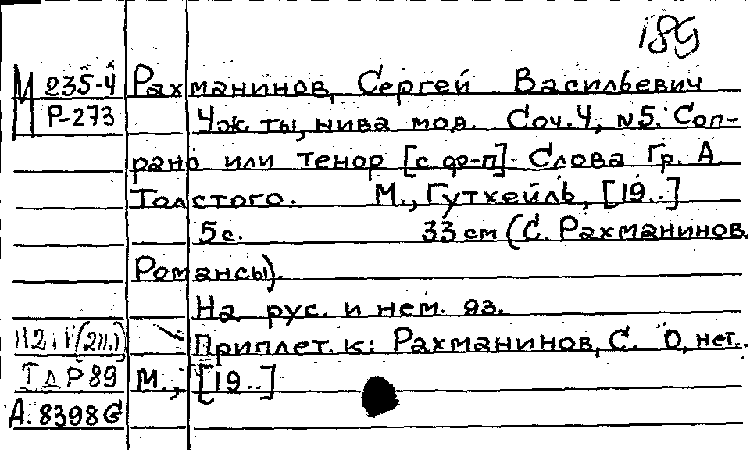 189
М 235-4 Рахманинов, Сергей Васильевич
Р-273 Уж ты, нива моя. Соч.4, №5. Соп-
рано или тенор [с ф-п]. Слова Гр. А.
Толстого. М., Гутхейль, [19..]
5с. 33 см (С. Рахманинов.
Романсы).
На рус. и нем. яз.
Приплет. к: Рахманинов, С. О, нет..
Р 89 М., [19..]
А. 8398